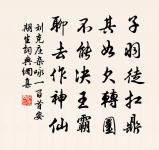 子羽徒扛鼎
其如欠轉圜
不能決王霸
聊去作神仙
刘克庄杂咏一百首安
期生詞典網集